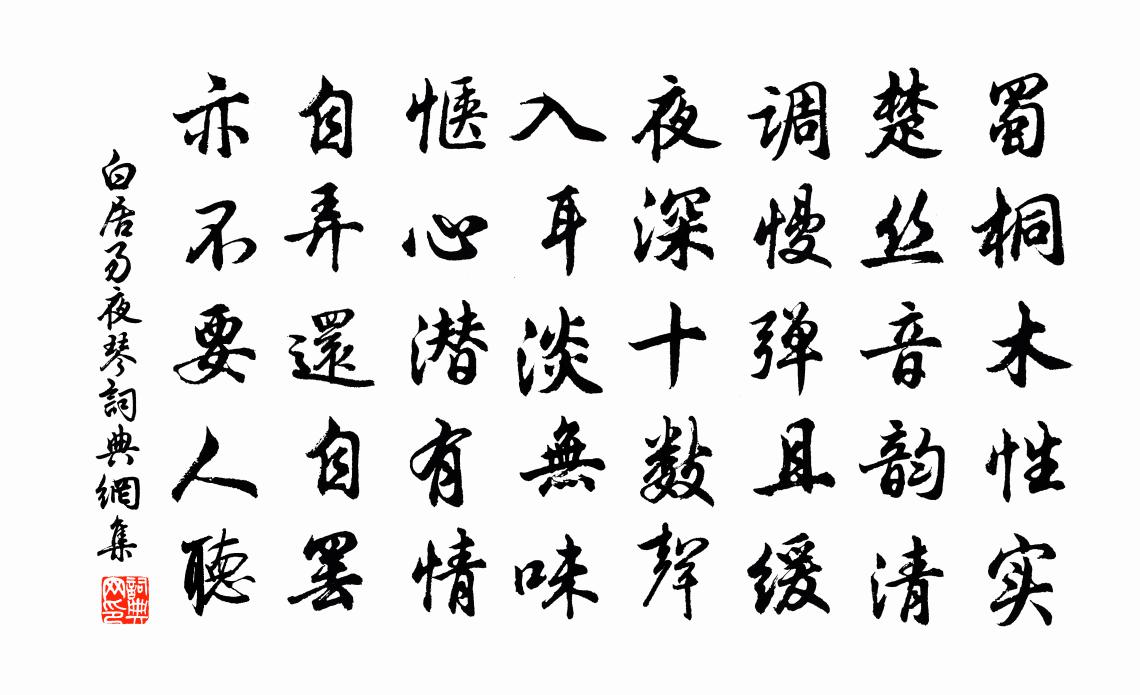 蜀桐木性实
楚丝音韵清
调慢弹且缓
夜深十数聲
入耳淡無味
惬心潜有情
自弄還自罢
亦不要人聽
白居易夜琴詞典網集
詞典网印